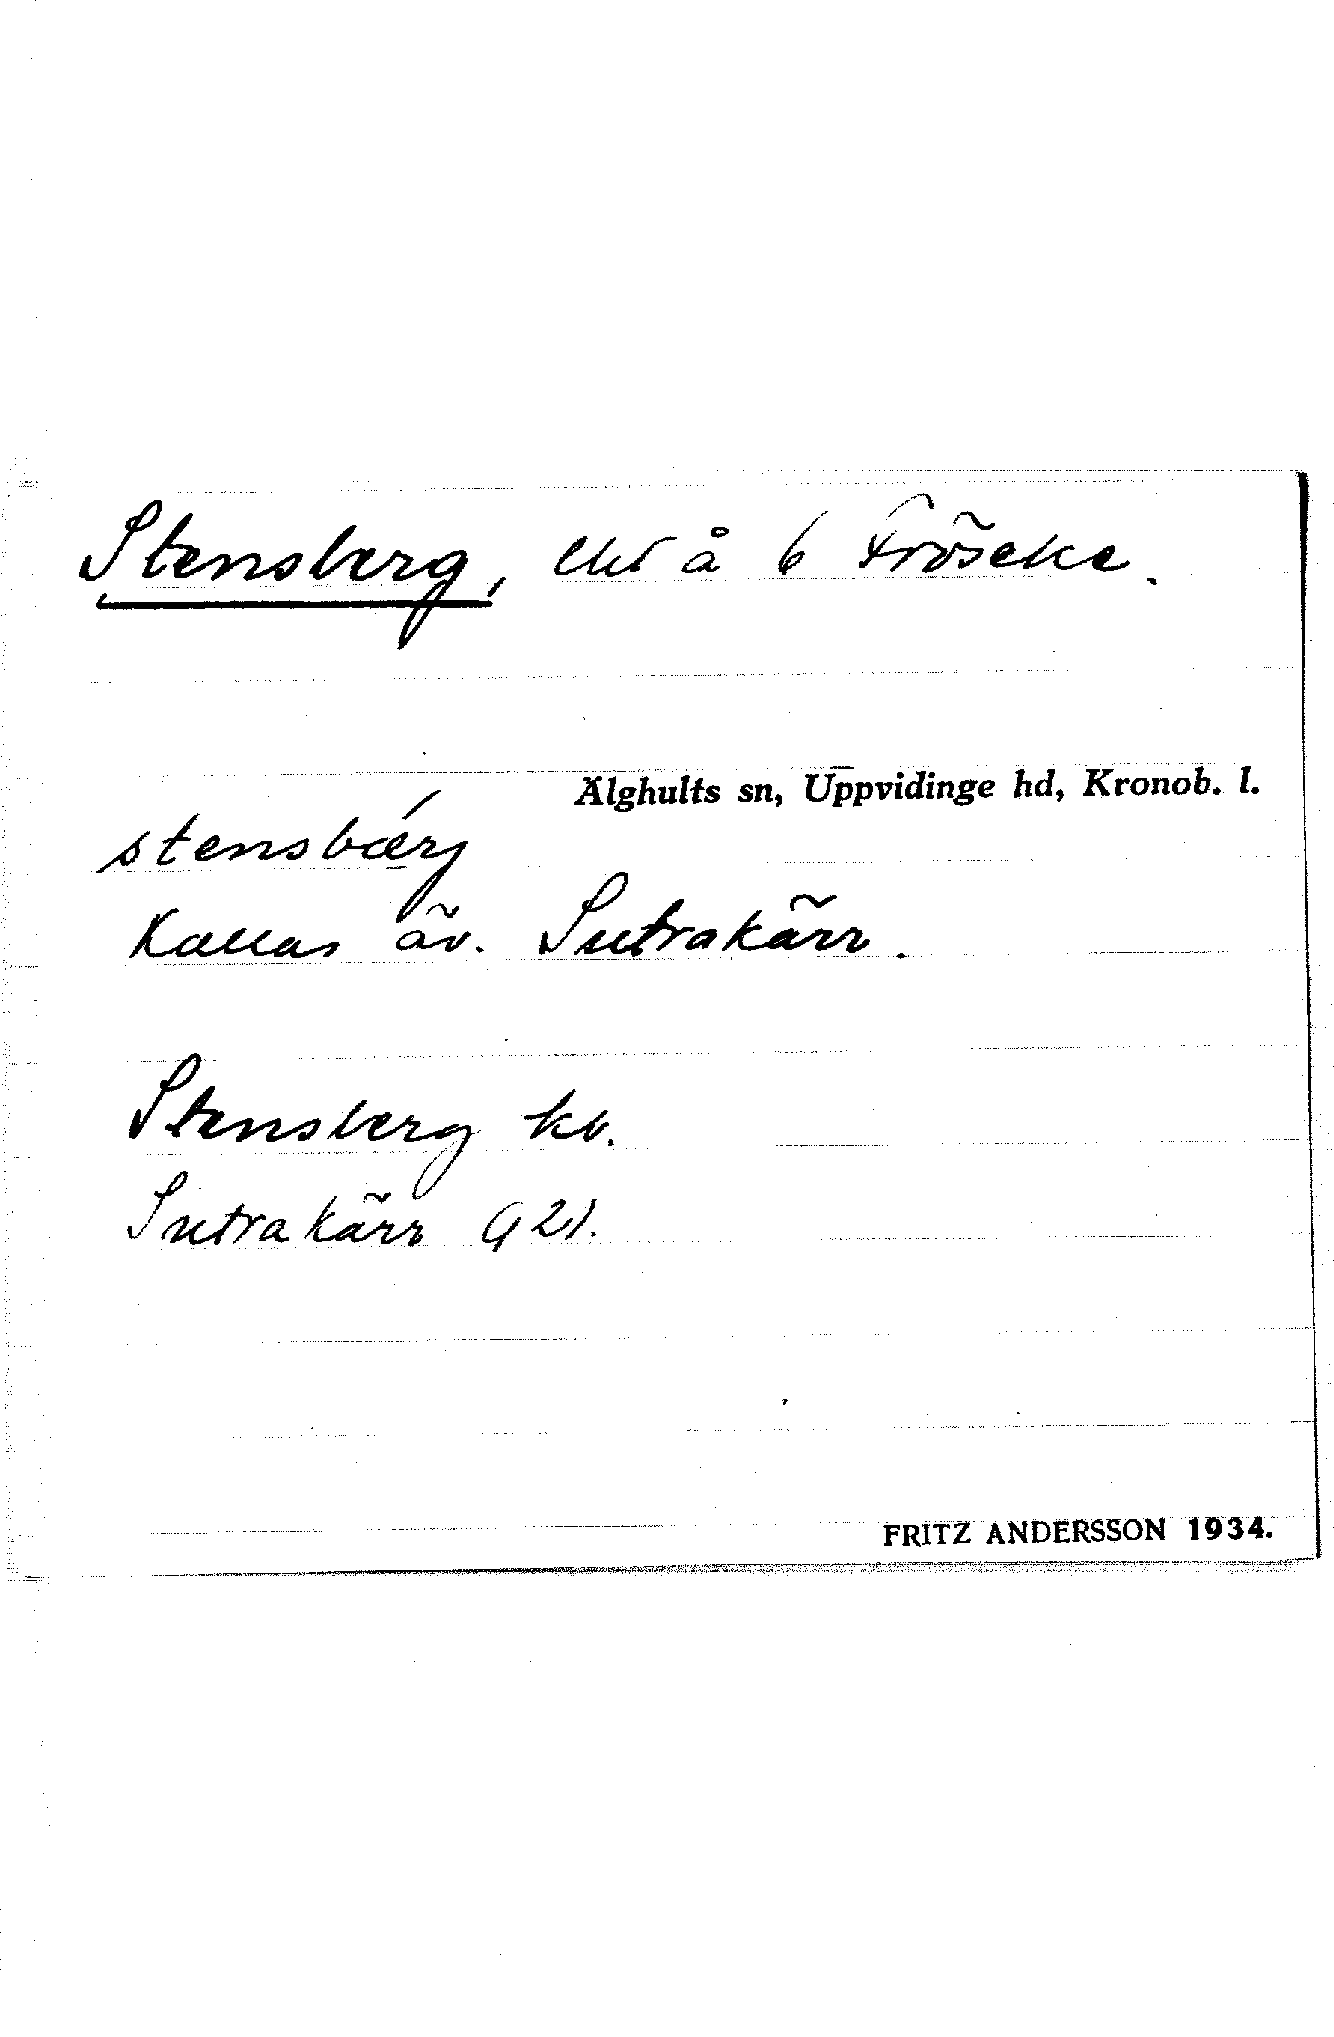 Stensberg, å 6 Fröseke.
Älghults sn, Uppvidinge hd, Kronob. l.
stensbærj
Kallas äv. Sutrakärr.
Stensberg kb.
Sutrakärr G21.
FRITZ ANDERSSON 1934.